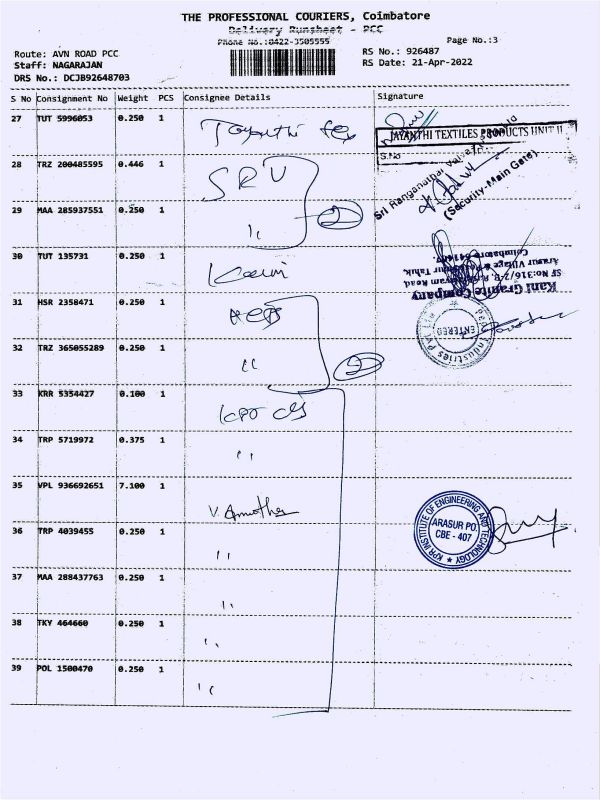 THE PROFESSIONAL COURIERS, Coimbatore
Delivery Runsheet - PCC
Phone No.:0422-3505555
Page No.:3
Route: AVN ROAD PCC
RS No.: 926487
Staff: NAGARAJAN
RS Date: 21-Apr-2022
DRS No.: DCJB92648703
S No Consignment No Weight PCS Consignee Details Signature
27 TUT 5996053 0.250 1 Jayanthi Tex
JAYANTHI TEXTILES PRODUCTS UNIT II
S.No
28 TRZ 200485595 0.446 1 SRU
(Security-Main Gate)
29 MAA 285937551 0.250 1 "
2
30 TUT 135731 0.250 1
Kani Granite Company
Arasur Village
Coimbatore 641407.
31 HSR 2358471 0.250 1
ENTERED
Industries Pvt Ltd
32 TRZ 365055289 0.250 1 "
2
33 KRR 5354427 0.100 1
34 TRP 5719972 0.375 1 "
35 VPL 936692651 7.100 1 V. Amutha
KPR INSTITUTE OF ENGINEERING AND TECHNOLOGY
ARASUR PO.
CBE - 407
36 TRP 4039455 0.250 1 "
37 MAA 288437763 0.250 1 "
38 TKY 464660 0.250 1 "
39 POL 1500470 0.250 1 "